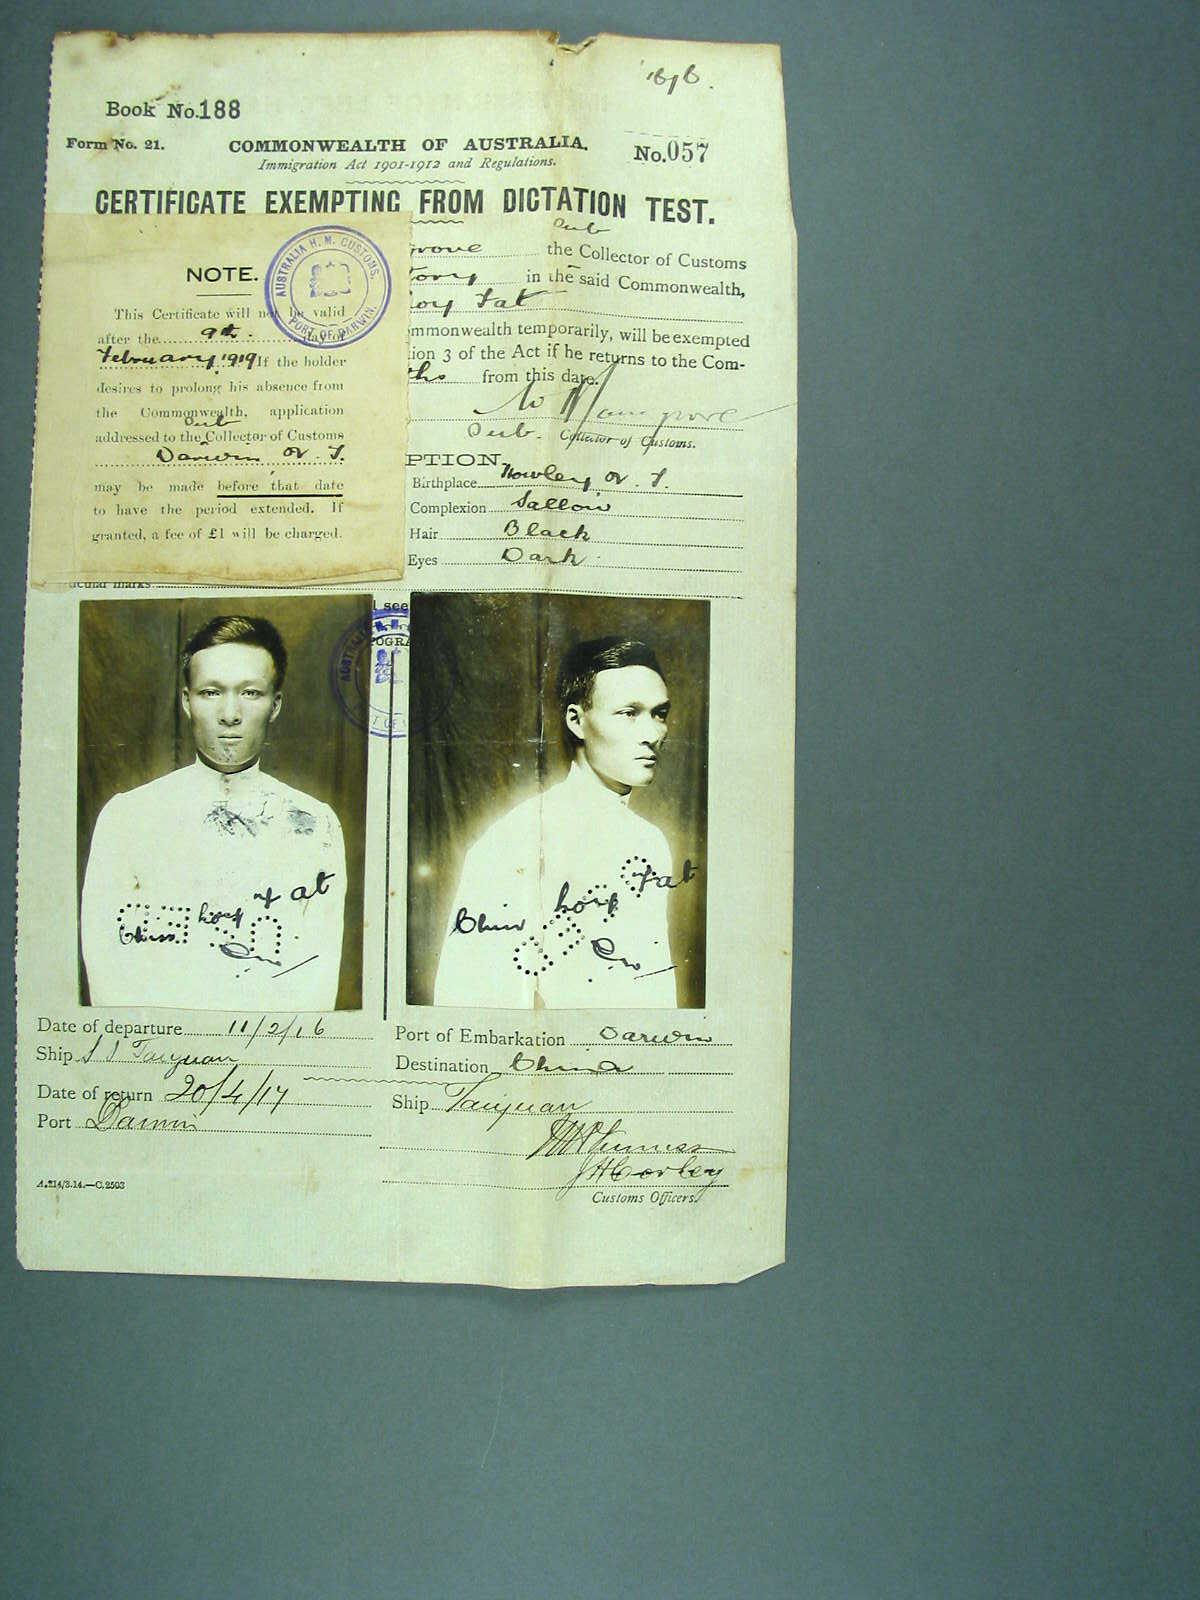 16/6.
Book No. 188
Form No. 21.
COMMONWEALTH OF AUSTRALIA.
No. 057
Immigration Act 1901-1912 and Regulations.
CERTIFICATE EXEMPTING FROM DICTATION TEST.
Sub
grove the Collector of Customs
tory in the said Commonwealth,
hoy Fat
mmonwealth temporarily, will be exempted
tion 3 of the Act if he returns to the Com-
ths from this date.
Sub. Collector of Customs.
NOTE.
AUSTRALIA H. M. CUSTOMS.
PORT OF DARWIN.
This Certificate will not be valid
after the 9th. day of
February 1919 If the holder
desires to prolong his absence from
the Commonwealth, application
Sub
addressed to the Collector of Customs
Darwin N. T.
may be made before that date
to have the period extended. If
granted, a fee of £1 will be charged.
PTION.
Birthplace Howley N. T.
Complexion Sallow
Hair Black
Eyes Dark
icular marks
Chin hoy Fat
Chin hoy Fat
Date of departure 11/2/16
Port of Embarkation Darwin
Ship S S Taiyuan
Destination China
Date of return 20/4/17
Ship Taiyuan
Port Darwin
JHCorley
Customs Officers.
A.214/3.14.—C.2503